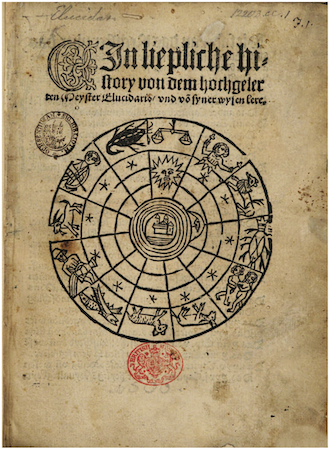 Elucidar
EIn liepliche hi-
story von dem hochgeler
ten Meyster Elucidario/ vnd vō syner wysen lere.